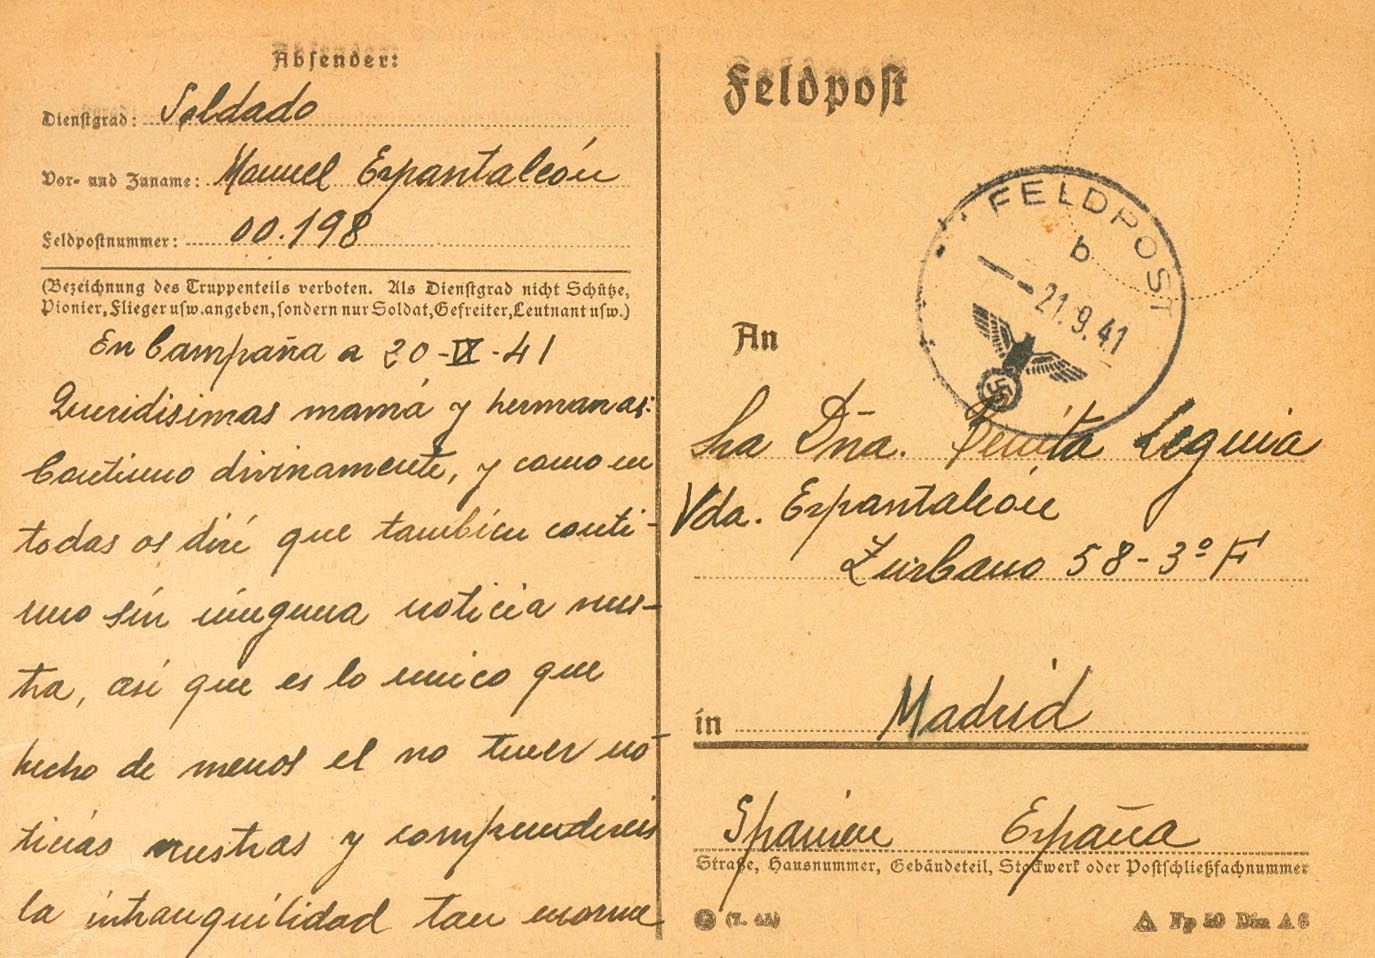 Absender:
Dienstgrad: Soldado
Vor- und Zuname: Manuel Espantaleón
Feldpostnummer: 00.198
(Bezeichnung des Truppenteils verboten. Als Dienstgrad nicht Schütze,
Pionier, Flieger usw. angeben, sondern nur Soldat, Gefreiter, Leutnant usw.)
En Campaña a 20-IX-41
Queridisimas mamá y hermanas:
Continuo divinamente, y como en
todas os diré que tambien conti-
nuo sin ninguna noticia vues-
tra, asi que es lo unico que
hecho de menos el no tener no
ticias vuestras y comprendereis
la intranquilidad tan enorme
Feldpost
FELDPOST
b
21.9.41
An
Sra Dña. Benita Leguia
Vda. Espantaleón
Zurbano 58-3º F
in Madrid
Spanien España
Straße, Hausnummer, Gebäudeteil, Stockwerk oder Postschließfachnummer
(7. 41)
Fp 50 Din A 6